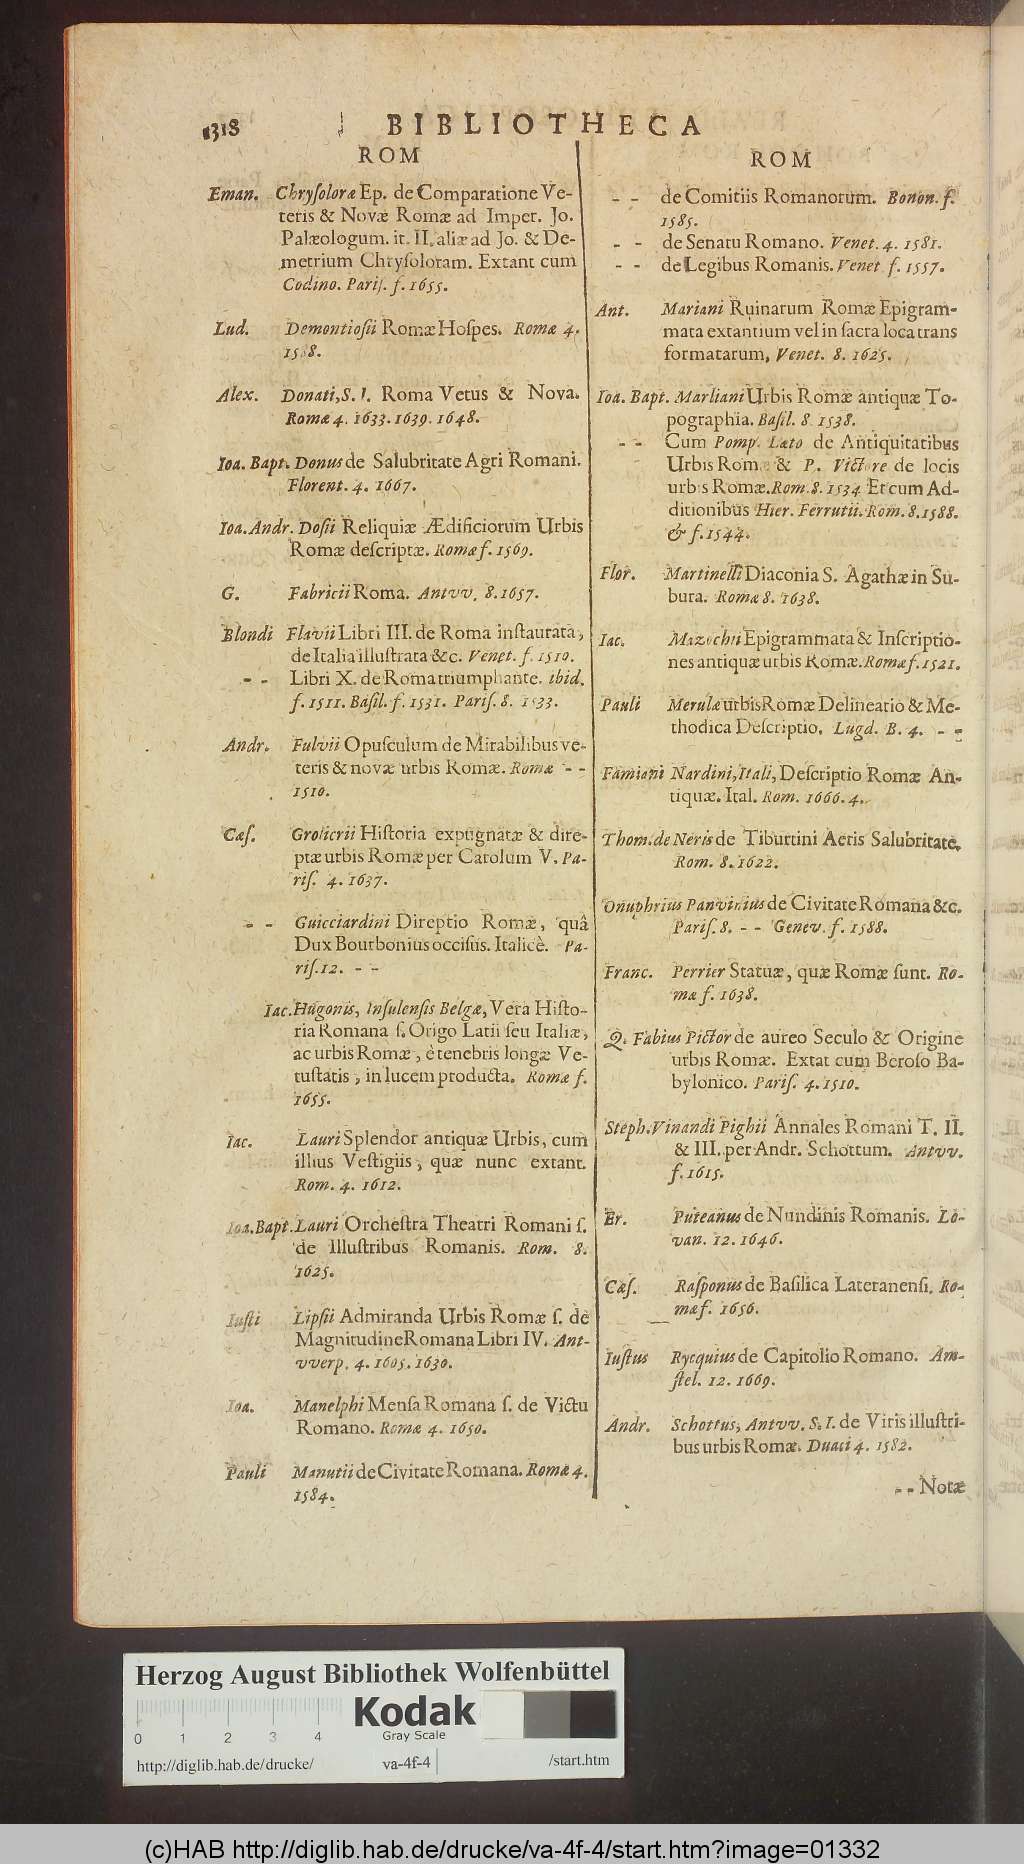 1318 BIBLIOTHECA
ROM
Eman. Chrysoloræ Ep. de Comparatione Ve-
teris & Novæ Romæ ad Imper. Jo.
Palæologum. it. II. aliæ ad Jo. & De-
metrium Chrysoloram. Extant cum
Codino. Paris. f. 1655.
Lud. Demontiosii Romæ Hospes. Romæ 4.
1588.
Alex. Donati, S. I. Roma Vetus & Nova.
Romæ 4. 1633. 1639. 1648.
Ioa. Bapt. Donus de Salubritate Agri Romani.
Florent. 4. 1667.
Ioa. Andr. Dosii Reliquiæ Ædificiorum Urbis
Romæ descriptæ. Romæ f. 1569.
G. Fabricii Roma. Antvv. 8. 1657.
Blondi Flavii Libri III. de Roma instaurata,
de Italia illustrata &c. Venet. f. 1510.
- - Libri X. de Roma triumphante. ibid.
f. 1511. Basil. f. 1531. Paris. 8. 1533.
Andr. Fulvii Opusculum de Mirabilibus ve-
teris & novæ urbis Romæ. Romæ - -
1510.
Cæs. Grolierii Historia expugnatæ & dire-
ptæ urbis Romæ per Carolum V. Pa-
ris. 4. 1637.
- - Guicciardini Direptio Romæ, quâ
Dux Bourbonius occisus. Italicè. Pa-
ris. 12. - -
Iac. Hugonis, Insulensis Belgæ, Vera Histo-
ria Romana s. Origo Latii seu Italiæ,
ac urbis Romæ, è tenebris longæ Ve-
tustatis, in lucem producta. Romæ f.
1655.
Iac. Lauri Splendor antiquæ Urbis, cum
illius Vestigiis, quæ nunc extant.
Rom. 4. 1612.
Ioa. Bapt. Lauri Orchestra Theatri Romani s.
de Illustribus Romanis. Rom. 8.
1625.
Iusti Lipsii Admiranda Urbis Romæ s. de
Magnitudine Romana Libri IV. Ant-
vverp. 4. 1605. 1630.
Ioa. Manelphi Mensa Romana s. de Victu
Romano. Romæ 4. 1650.
Pauli Manutii de Civitate Romana. Romæ 4.
1584.
ROM
- - de Comitiis Romanorum. Bonon. f.
1585.
- - de Senatu Romano. Venet. 4. 1581.
- - de Legibus Romanis. Venet f. 1557.
Ant. Mariani Ruinarum Romæ Epigram-
mata extantium vel in sacra loca trans
formatarum, Venet. 8. 1625.
Ioa. Bapt. Marliani Urbis Romæ antiquæ To-
pographia. Basil. 8. 1538.
- - Cum Pomp. Læto de Antiquitatibus
Urbis Romæ & P. Victore de locis
urbis Romæ. Rom. 8. 1534 Et cum Ad-
ditionibus Hier. Ferrutii. Rom. 8. 1588.
& f. 1544.
Flor. Martinelli Diaconia S. Agathæ in Su-
bura. Romæ 8. 1638.
Iac. Mazochii Epigrammata & Inscriptio-
nes antiquæ urbis Romæ. Romæ f. 1521.
Pauli Merulæ urbis Romæ Delineatio & Me-
thodica Descriptio. Lugd. B. 4. - -
Famiani Nardini, Itali, Descriptio Romæ An-
tiquæ. Ital. Rom. 1666. 4.
Thom. de Neris de Tiburtini Aeris Salubritate.
Rom. 8. 1622.
Onuphrius Panvinius de Civitate Romana &c.
Paris. 8. - - Genev. f. 1588.
Franc. Perrier Statuæ, quæ Romæ sunt. Ro-
mæ f. 1638.
Q. Fabius Pictor de aureo Seculo & Origine
urbis Romæ. Extat cum Beroso Ba-
bylonico. Paris. 4. 1510.
Steph. Vinandi Pighii Annales Romani T. II.
& III. per Andr. Schottum. Antvv.
f. 1615.
Er. Puteanus de Nundinis Romanis. Lo-
van. 12. 1646.
Cæs. Rasponus de Basilica Lateranensi. Ro-
mæ f. 1656.
Iustus Rycquius de Capitolio Romano. Am-
stel. 12. 1669.
Andr. Schottus, Antvv. S. I. de Viris illustri-
bus urbis Romæ. Duaci 4. 1582.
- - Notæ
Herzog August Bibliothek Wolfenbüttel
Kodak
Gray Scale
0 1 2 3 4
http://diglib.hab.de/drucke/ va-4f-4 /start.htm
(c)HAB http://diglib.hab.de/drucke/va-4f-4/start.htm?image=01332